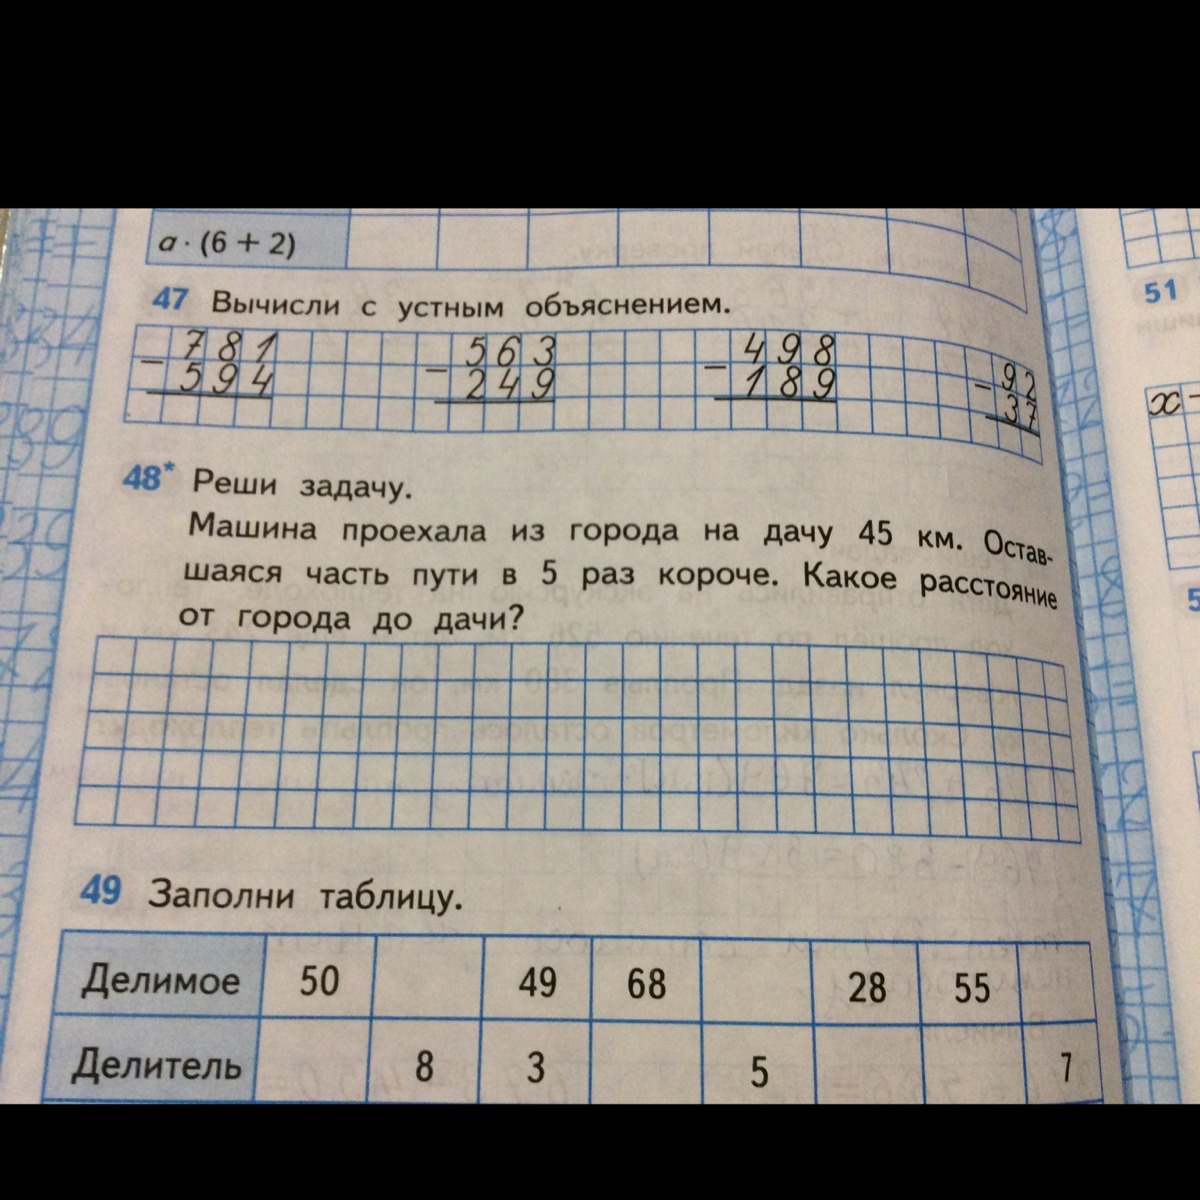 a · (6 + 2)
47 Вычисли с устным объяснением.
− 781 − 563 − 498 − 92
594 249 189 37
48* Реши задачу.
Машина проехала из города на дачу 45 км. Остав-
шаяся часть пути в 5 раз короче. Какое расстояние
от города до дачи?
49 Заполни таблицу.
Делимое 50 49 68 28 55
Делитель 8 3 5 7
51
x −
5